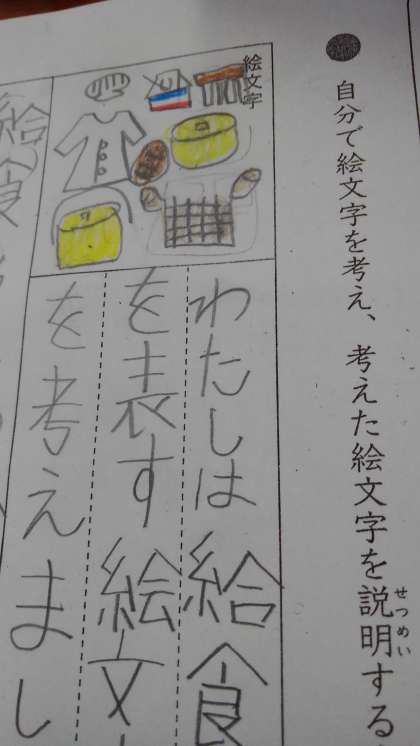 自分で絵文字を考え、考えた絵文字を説明する
せつめい
絵文字
わたしは給食
を表す絵文
を考えまし
給食